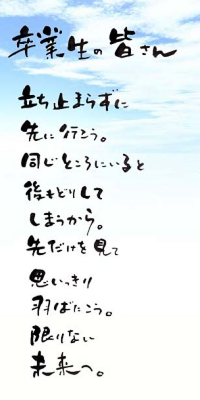 卒業生の皆さん
立ち止まらずに
先に行こう。
同じところにいると
後もどりして
しまうから。
先だけを見て
思いっきり
羽ばたこう。
限りない
未来へ。